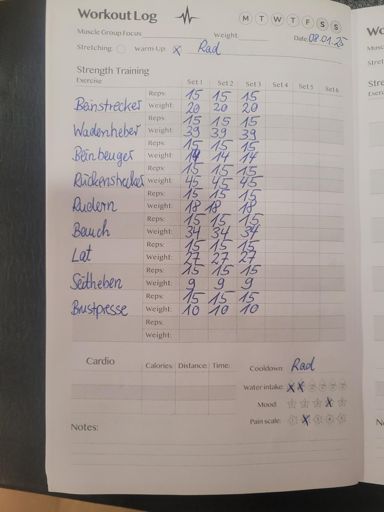 Workout Log M T W T F S S
Muscle Group Focus Weight: Date: 08.01.25
Stretching: Warm-Up: x Rad
Strength Training
Exercise Set 1 Set 2 Set 3 Set 4 Set 5 Set 6
Reps: 15 15 15
Beinstrecker Weight: 20 20 20
Reps: 15 15 15
Wadenheber Weight: 39 39 39
Reps: 15 15 15
Beinbeuger Weight: 14 14 14
Reps: 15 15 15
Rückenstrecker Weight: 45 45 45
Reps: 15 15 15
Rudern Weight: 18 18 18
Reps: 15 15 15
Bauch Weight: 34 34 34
Reps: 15 15 15
Lat Weight: 27 27 27
Reps: 15 15 15
Seitheben Weight: 9 9 9
Reps: 15 15 15
Brustpresse Weight: 10 10 10
Reps:
Weight:
Cardio Calories: Distance: Time: Cooldown: Rad
Water intake:
Mood:
Pain scale:
Notes: